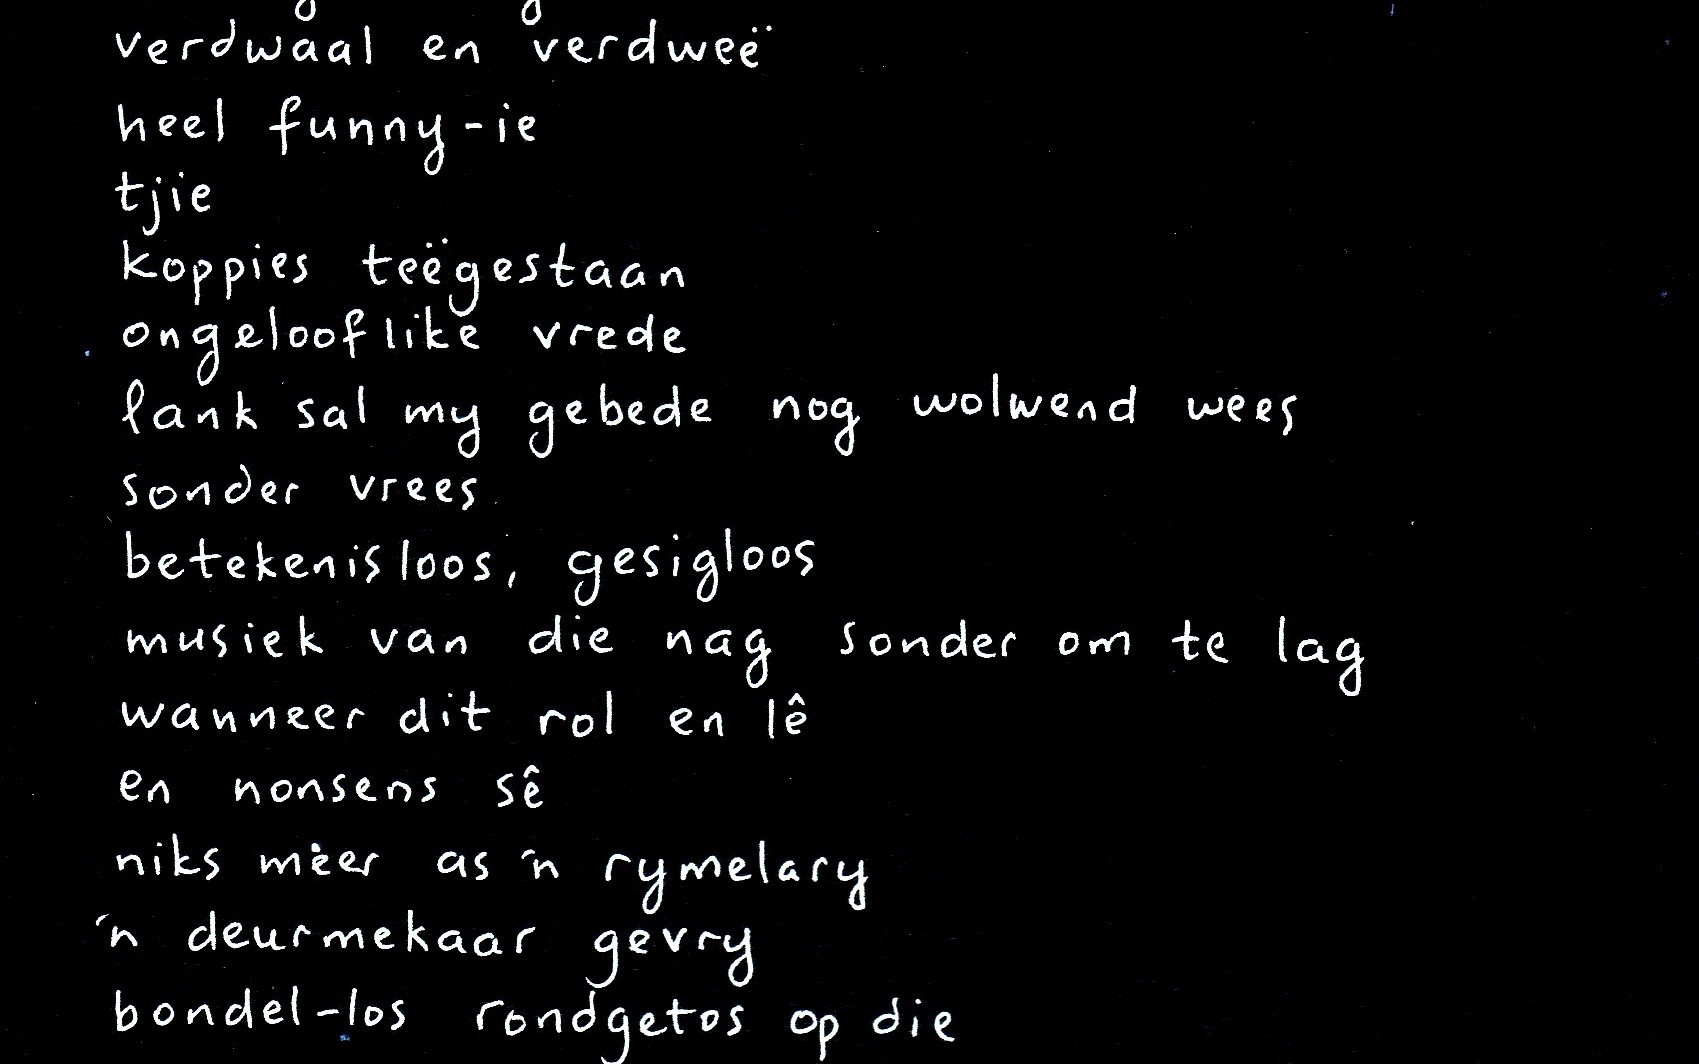 verdwaal en verdweë
heel funny-ie
tjie
koppies teëgestaan
ongelooflike vrede
lank sal my gebede nog wolwend wees
sonder vrees
betekenisloos, gesigloos
musiek van die nag sonder om te lag
wanneer dit rol en lê
en nonsens sê
niks mèer as 'n rymelary
'n deurmekaar gevry
bondel-los rondgetos op die